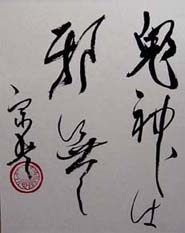 鬼神は
邪無し
宗